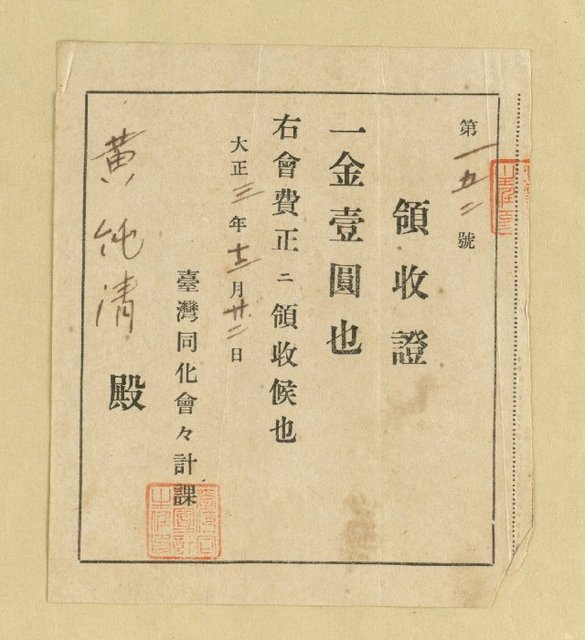 第一五二號
領收證
一金壹圓也
右會費正ニ領收候也
大正三年十二月廿二日
臺灣同化會々計課
黃純清殿